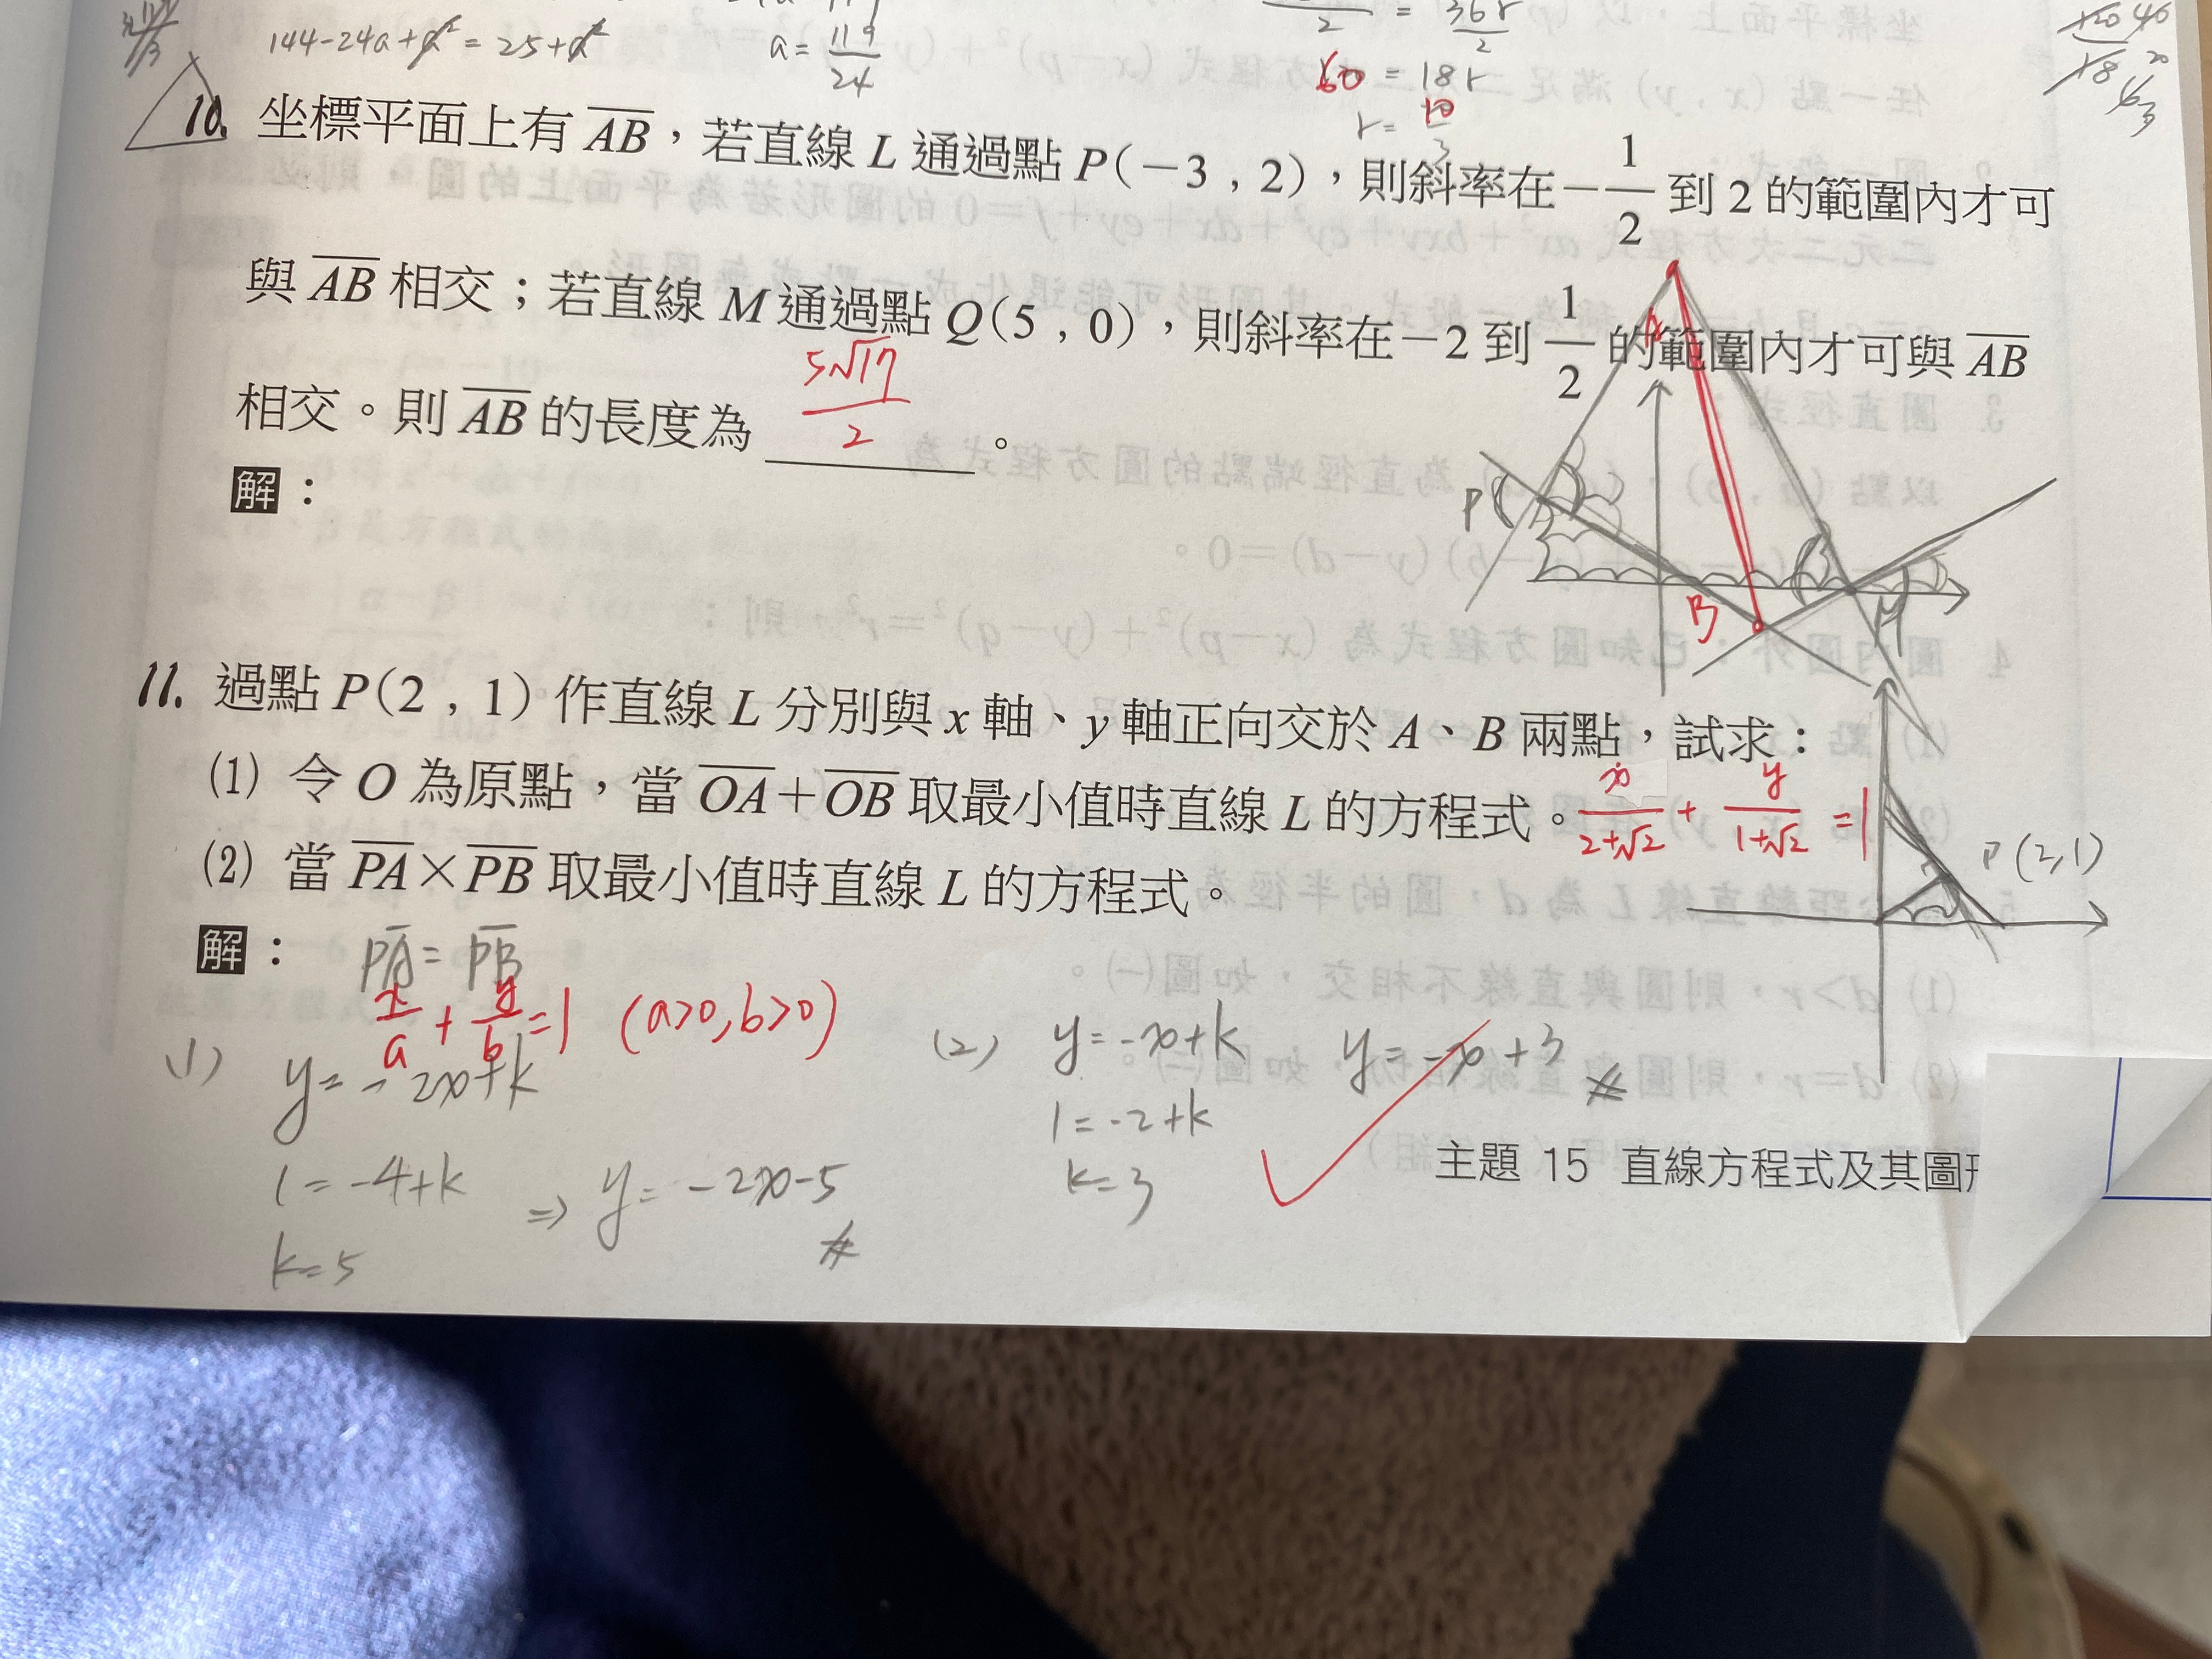 144-24a+a²=25+a²
a=119/24
2 = 36r/2
60 = 18r
r= 10/3
10. 坐標平面上有 AB，若直線 L 通過點 P(－3 , 2)，則斜率在－1/2 到 2 的範圍內才可
與 AB 相交；若直線 M 通過點 Q(5 , 0)，則斜率在－2 到 1/2 的範圍內才可與 AB
相交。則 AB 的長度為 5√17/2 。
解：
A
P
B
11. 過點 P(2 , 1) 作直線 L 分別與 x 軸、y 軸正向交於 A、B 兩點，試求：
(1) 令 O 為原點，當 OA＋OB 取最小值時直線 L 的方程式。 x/2+√2 + y/1+√2 =1
P(2,1)
(2) 當 PA×PB 取最小值時直線 L 的方程式。
解： PA=PB
x/a + y/b =1 (a>0,b>0)
(1) y=-2x+k
1=-4+k
k=5
⇒ y=-2x-5
(2) y=-x+k
1=-2+k
k=3
y=-x+3
主題 15 直線方程式及其圖